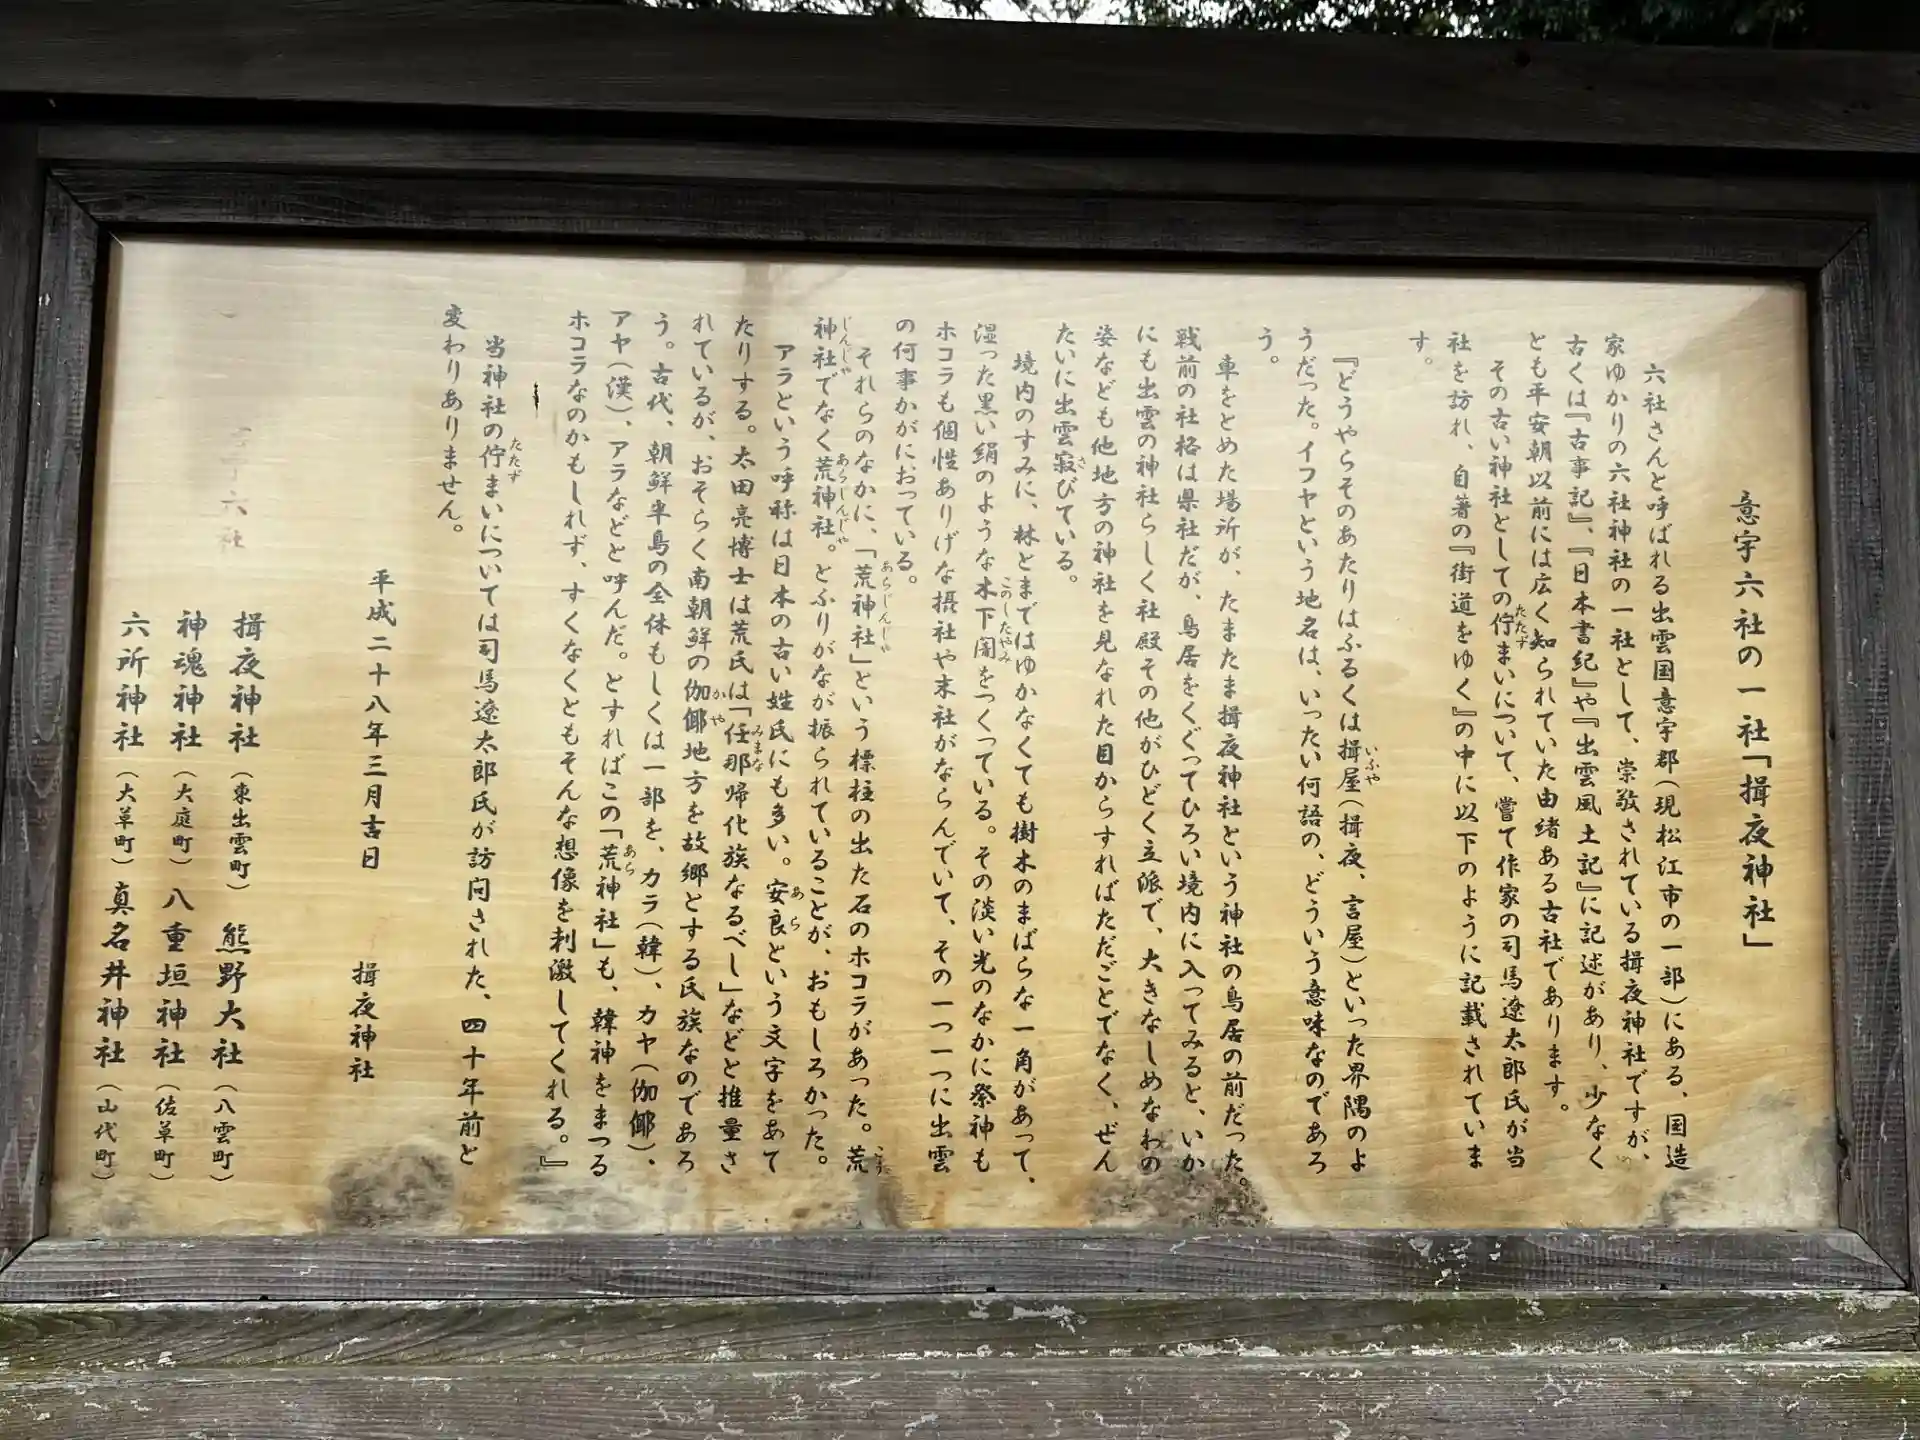 意宇六社の一社「揖夜神社」
六社さんと呼ばれる出雲国意宇郡(現松江市の一部)にある、国造
家ゆかりの六社神社の一社として、崇敬されている揖夜神社ですが、
古くは『古事記』、『日本書紀』や『出雲風土記』に記述があり、少なく
とも平安朝以前には広く知られていた由緒ある古社であります。
その古い神社としての佇まいについて、嘗て作家の司馬遼太郎氏が当
社を訪れ、自著の『街道をゆく』の中に以下のように記載されていま
す。
『どうやらそのあたりはふるくは揖屋(揖夜、言屋)といった界隈のよ
うだった。イフヤという地名は、いったい何語の、どういう意味なのであろ
う。
車をとめた場所が、たまたま揖夜神社という神社の鳥居の前だった。
戦前の社格は県社だが、鳥居をくぐってひろい境内に入ってみると、いか
にも出雲の神社らしく社殿その他がひどく立派で、大きなしめなわの
姿なども他地方の神社を見なれた目からすればただごとでなく、ぜん
たいに出雲寂びている。
境内のすみに、林とまではゆかなくても樹木のまばらな一角があって、
湿った黒い絹のような木下闇をつくっている。その淡い光のなかに祭神も
ホコラも個性ありげな摂社や末社がならんでいて、その一つ一つに出雲
の何事かがにおっている。
それらのなかに、「荒神社」という標柱の出た石のホコラがあった。荒
神社でなく荒神社。とふりがなが振られていることが、おもしろかった。
アラという呼称は日本の古い姓氏にも多い。安良という文字をあて
たりする。太田亮博士は荒氏は「任那帰化族なるべし」などと推量さ
れているが、おそらく南朝鮮の伽倻地方を故郷とする氏族なのであろ
う。古代、朝鮮半島の全体もしくは一部を、カラ(韓)、カヤ(伽倻)、
アヤ(漢)、アラなどと呼んだ。とすればこの「荒神社」も、韓神をまつる
ホコラなのかもしれず、すくなくともそんな想像を刺激してくれる。』
当神社の佇まいについては司馬遼太郎氏が訪問された、四十年前と
変わりありません。
平成二十八年三月吉日　揖夜神社
六社
揖夜神社(東出雲町)　熊野大社(八雲町)
神魂神社(大庭町)　八重垣神社(佐草町)
六所神社(大草町)　真名井神社(山代町)